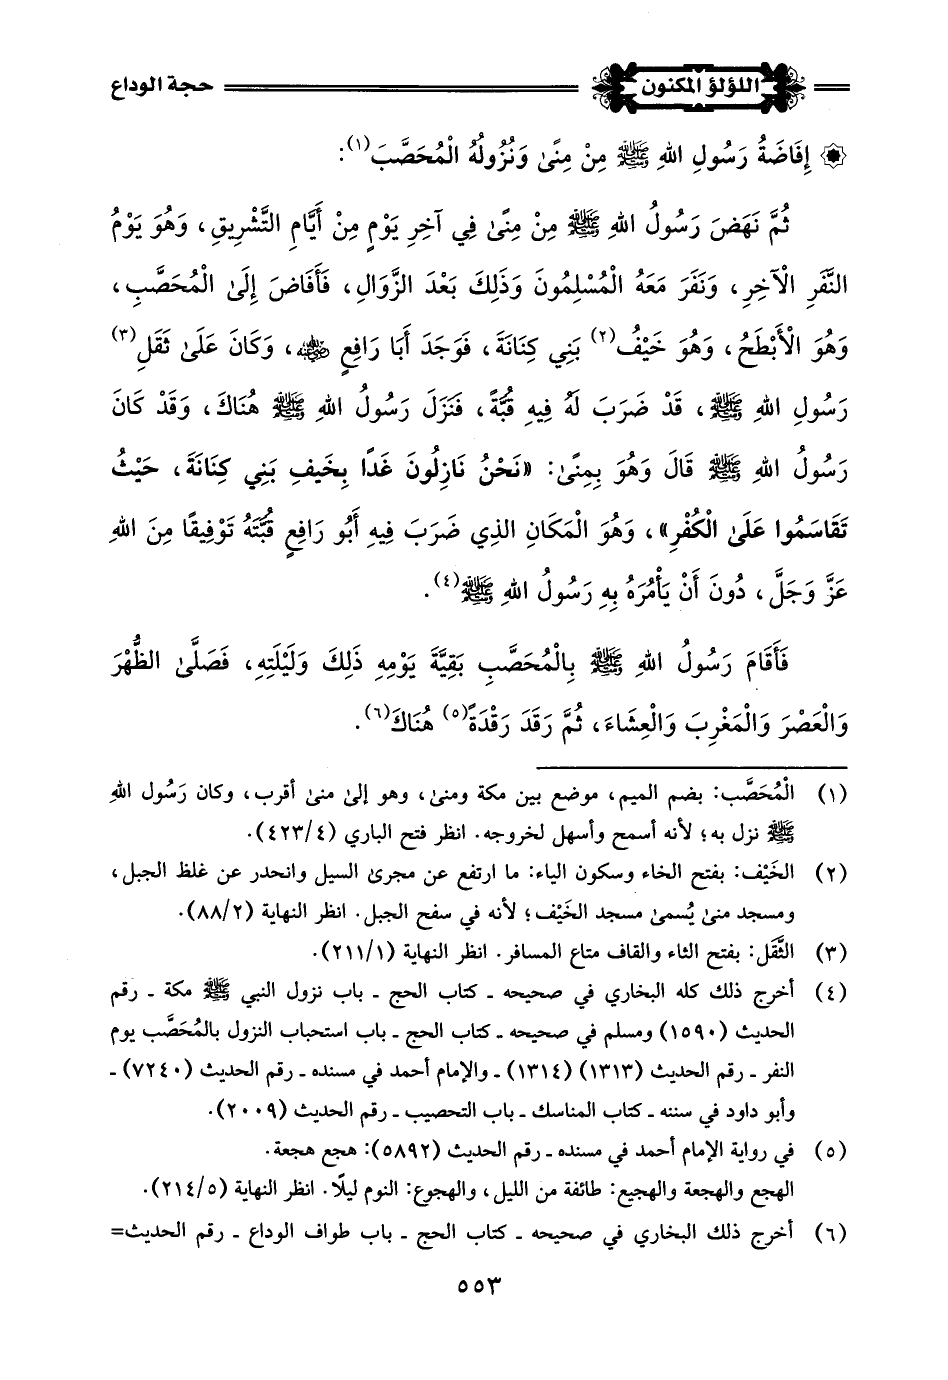 اللؤلؤ المكنون
حجة الوداع
إِفَاضَةُ رَسُولِ اللهِ ﷺ مِنْ مِنًى وَنُزُولُهُ الْمُحَصَّبَ(١):
ثُمَّ نَهَضَ رَسُولُ اللهِ ﷺ مِنْ مِنًى فِي آخِرِ يَوْمٍ مِنْ أَيَّامِ التَّشْرِيقِ، وَهُوَ يَوْمُ
النَّفَرِ الْآخِرِ، وَنَفَرَ مَعَهُ الْمُسْلِمُونَ وَذَلِكَ بَعْدَ الزَّوَالِ، فَأَفَاضَ إِلَى الْمُحَصَّبِ،
وَهُوَ الْأَبْطَحُ، وَهُوَ خَيْفُ(٢) بَنِي كِنَانَةَ، فَوَجَدَ أَبَا رَافِعٍ ﵁، وَكَانَ عَلَى ثَقَلِ(٣)
رَسُولِ اللهِ ﷺ، قَدْ ضَرَبَ لَهُ فِيهِ قُبَّةً، فَنَزَلَ رَسُولُ اللهِ ﷺ هُنَاكَ، وَقَدْ كَانَ
رَسُولُ اللهِ ﷺ قَالَ وَهُوَ بِمِنًى: «نَحْنُ نَازِلُونَ غَدًا بِخَيفِ بَنِي كِنَانَةَ، حَيْثُ
تَقَاسَمُوا عَلَى الْكُفْرِ»، وَهُوَ الْمَكَانِ الذِي ضَرَبَ فِيهِ أَبُو رَافِعٍ قُبَّتَهُ تَوْفِيقًا مِنَ اللهِ
عَزَّ وَجَلَّ، دُونَ أَنْ يَأْمُرَهُ بِهِ رَسُولُ اللهِ ﷺ(٤).
فَأَقَامَ رَسُولُ اللهِ ﷺ بِالْمُحَصَّبِ بَقِيَّةَ يَوْمِهِ ذَلِكَ وَلَيْلَتِهِ، فَصَلَّى الظُّهْرَ
وَالْعَصْرَ وَالْمَغْرِبَ وَالْعِشَاءَ، ثُمَّ رَقَدَ رَقْدَةً(٥) هُنَاكَ(٦).
(١) الْمُحَصَّب: بضم الميم، موضع بين مكة ومنى، وهو إلى منى أقرب، وكان رَسُول اللهِ
ﷺ نزل به؛ لأنه أسمح وأسهل لخروجه. انظر فتح الباري (٤/٤٢٣).
(٢) الخَيْف: بفتح الخاء وسكون الياء: ما ارتفع عن مجرى السيل وانحدر عن غلظ الجبل،
ومسجد منى يُسمى مسجد الخَيْف؛ لأنه في سفح الجبل. انظر النهاية (٢/٨٨).
(٣) الثَّقَل: بفتح الثاء والقاف متاع المسافر. انظر النهاية (١/٢١١).
(٤) أخرج ذلك كله البخاري في صحيحه ـ كتاب الحج ـ باب نزول النبي ﷺ مكة ـ رقم
الحديث (١٥٩٠) ومسلم في صحيحه ـ كتاب الحج ـ باب استحباب النزول بالمُحَصَّب يوم
النفر ـ رقم الحديث (١٣١٣) (١٣١٤) ـ والإمام أحمد في مسنده ـ رقم الحديث (٧٢٤٠) ـ
وأبو داود في سننه ـ كتاب المناسك ـ باب التحصيب ـ رقم الحديث (٢٠٠٩).
(٥) في رواية الإمام أحمد في مسنده ـ رقم الحديث (٥٨٩٢): هجع هجعة.
الهجع والهجعة والهجيع: طائفة من الليل، والهجوع: النوم ليلًا. انظر النهاية (٥/٢١٤).
(٦) أخرج ذلك البخاري في صحيحه ـ كتاب الحج ـ باب طواف الوداع ـ رقم الحديث=
٥٥٣